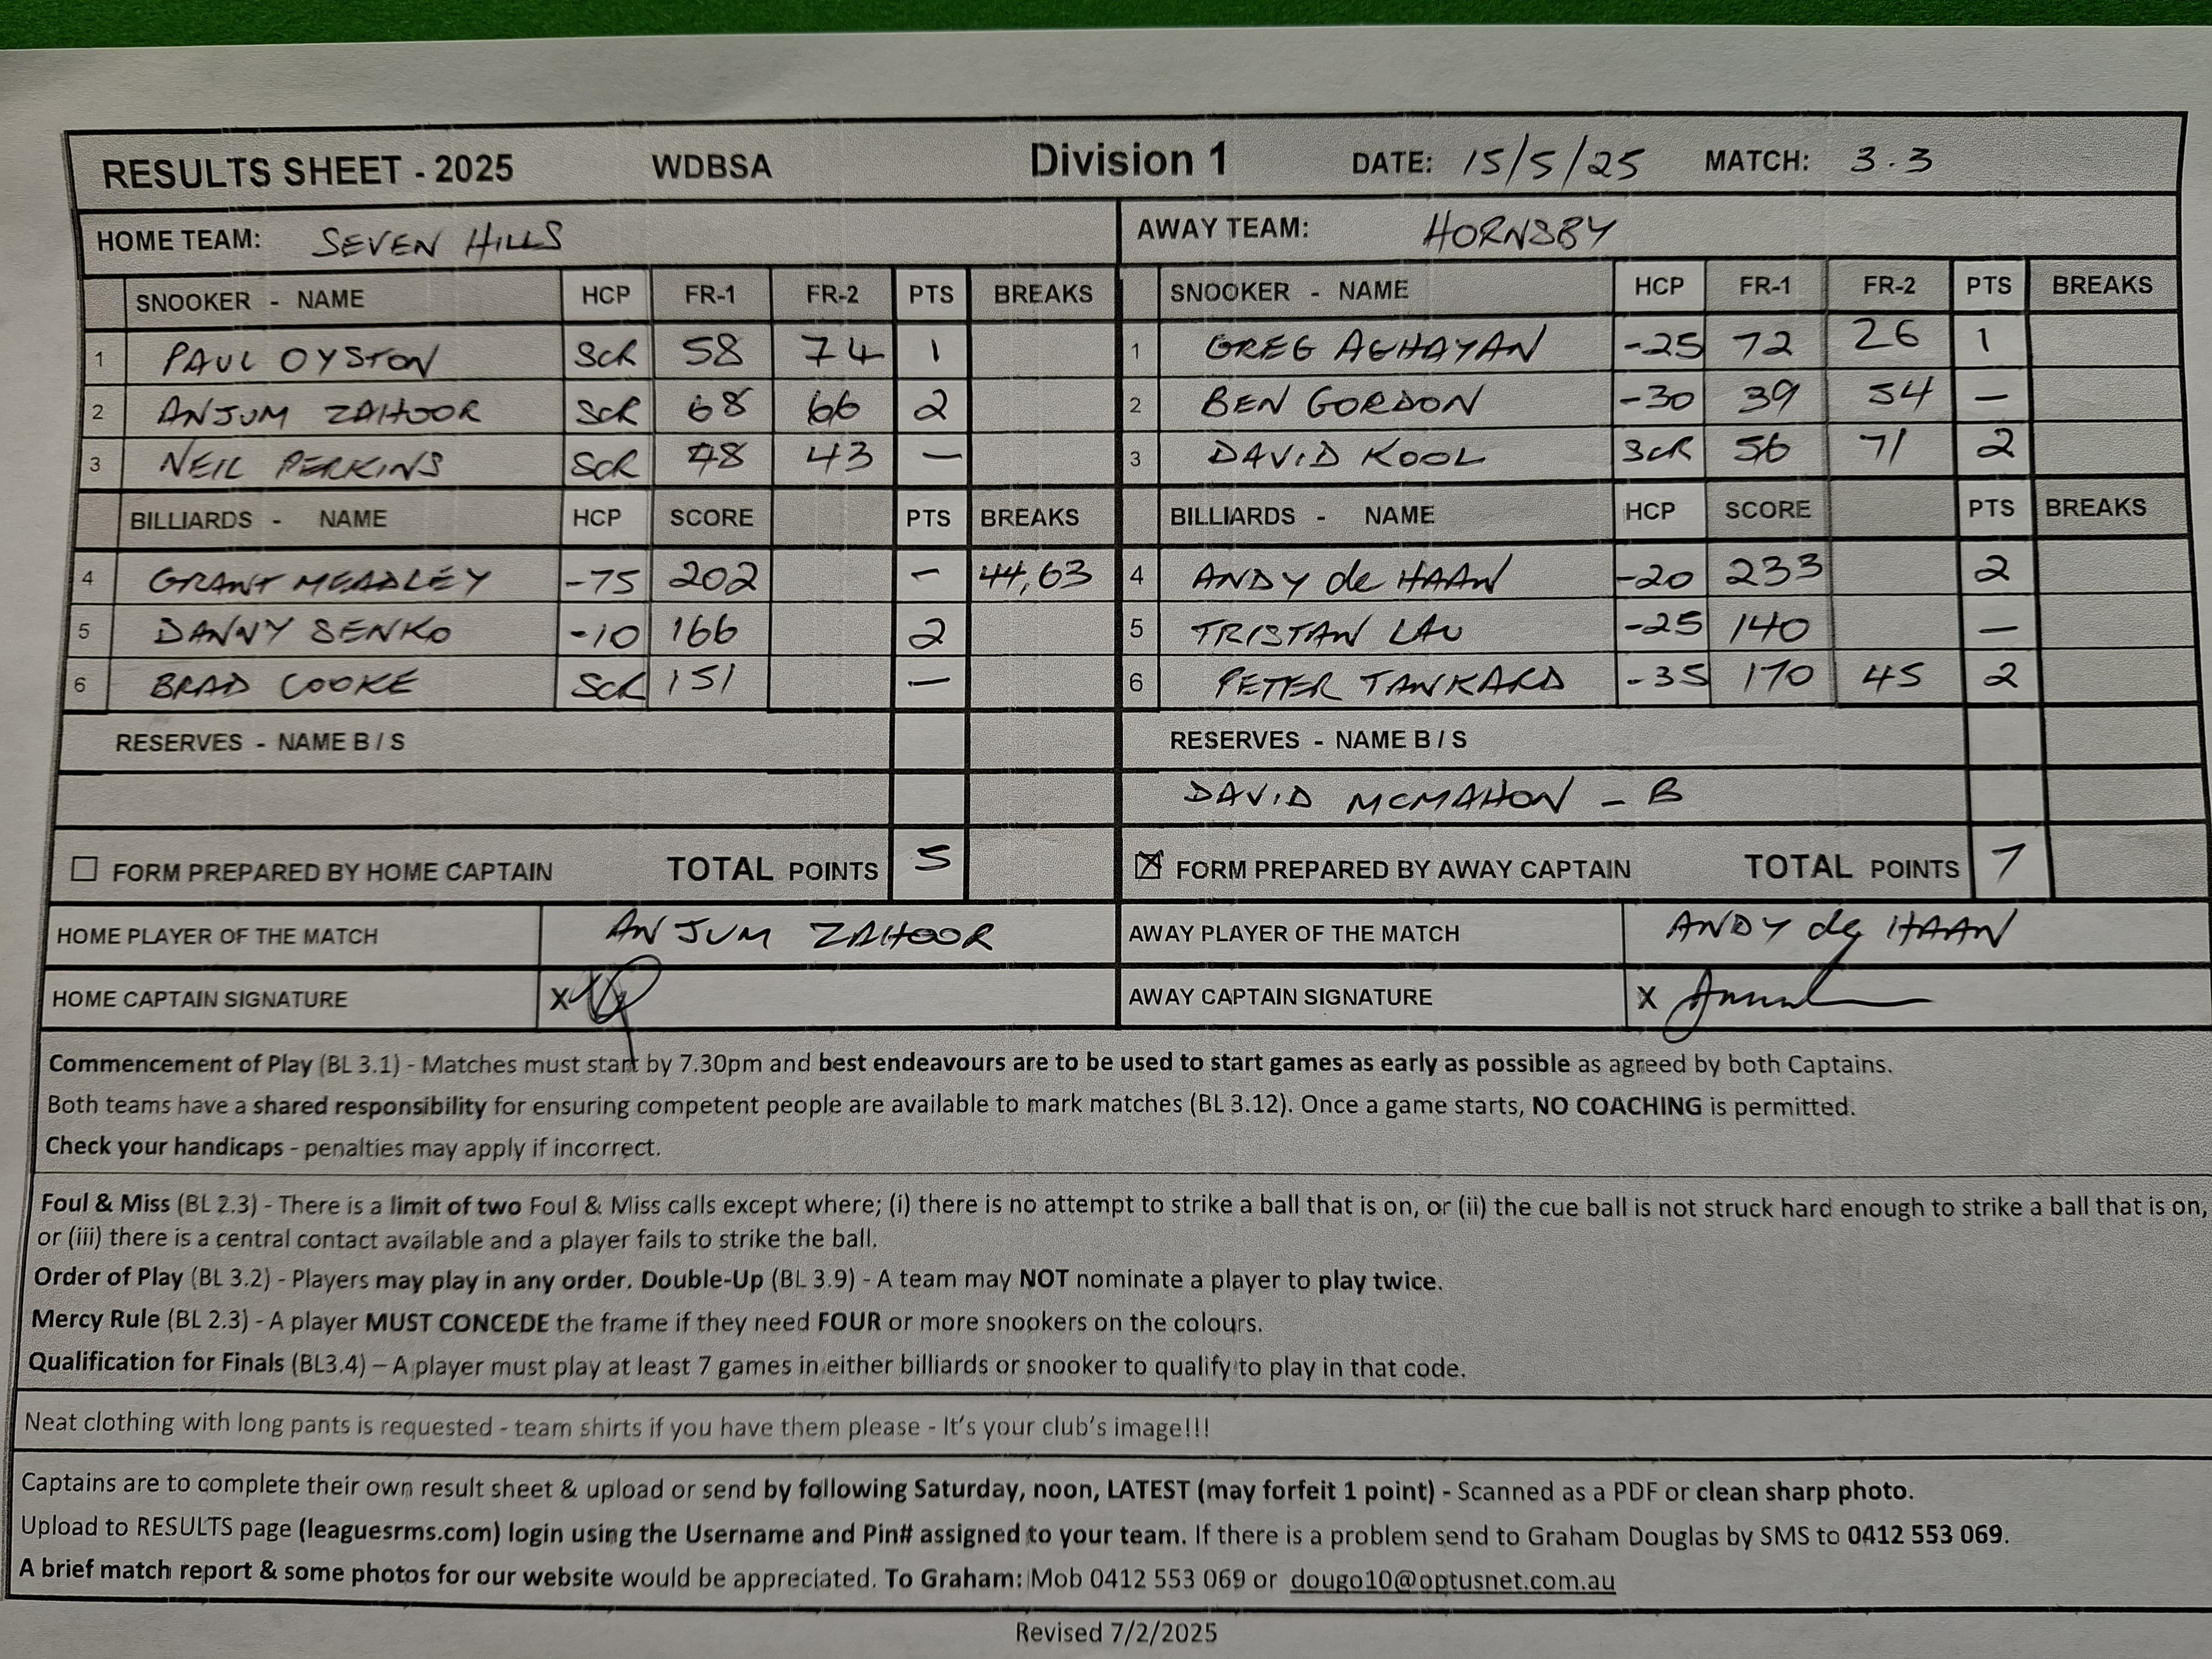 RESULTS SHEET - 2025 WDBSA Division 1 DATE: 15/5/25 MATCH: 3.3
HOME TEAM: SEVEN HILLS AWAY TEAM: HORNSBY
SNOOKER - NAME HCP FR-1 FR-2 PTS BREAKS 1 SNOOKER - NAME HCP FR-1 FR-2 PTS BREAKS
1 PAUL OYSTON SCR 58 74 1 1 GREG AGHAYAN -25 72 26 1
2 ANJUM ZAHOOR SCR 68 66 2 2 BEN GORDON -30 39 54 —
3 NEIL PERKINS SCR 48 43 — 3 DAVID KOOL SCR 56 71 2
BILLIARDS - NAME HCP SCORE PTS BREAKS BILLIARDS - NAME HCP SCORE PTS BREAKS
4 GRANT MEADLEY -75 202 - 44,63 4 ANDY de HAAN -20 233 2
5 DANNY SENKO -10 166 2 5 TRISTAN LAU -25 140 —
6 BRAD COOKE SCR 151 — 6 PETER TANKARD -35 170 45 2
RESERVES - NAME B / S RESERVES - NAME B / S
DAVID MCMAHON - B
FORM PREPARED BY HOME CAPTAIN TOTAL POINTS 5 FORM PREPARED BY AWAY CAPTAIN TOTAL POINTS 7
HOME PLAYER OF THE MATCH ANJUM ZAHOOR AWAY PLAYER OF THE MATCH ANDY de HAAN
HOME CAPTAIN SIGNATURE X AWAY CAPTAIN SIGNATURE X
Commencement of Play (BL 3.1) - Matches must start by 7.30pm and best endeavours are to be used to start games as early as possible as agreed by both Captains.
Both teams have a shared responsibility for ensuring competent people are available to mark matches (BL 3.12). Once a game starts, NO COACHING is permitted.
Check your handicaps - penalties may apply if incorrect.
Foul & Miss (BL 2.3) - There is a limit of two Foul & Miss calls except where; (i) there is no attempt to strike a ball that is on, or (ii) the cue ball is not struck hard enough to strike a ball that is on,
or (iii) there is a central contact available and a player fails to strike the ball.
Order of Play (BL 3.2) - Players may play in any order. Double-Up (BL 3.9) - A team may NOT nominate a player to play twice.
Mercy Rule (BL 2.3) - A player MUST CONCEDE the frame if they need FOUR or more snookers on the colours.
Qualification for Finals (BL3.4) – A player must play at least 7 games in either billiards or snooker to qualify to play in that code.
Neat clothing with long pants is requested - team shirts if you have them please - It's your club's image!!!
Captains are to complete their own result sheet & upload or send by following Saturday, noon, LATEST (may forfeit 1 point) - Scanned as a PDF or clean sharp photo.
Upload to RESULTS page (leaguesrms.com) login using the Username and Pin# assigned to your team. If there is a problem send to Graham Douglas by SMS to 0412 553 069.
A brief match report & some photos for our website would be appreciated. To Graham: Mob 0412 553 069 or dougo10@optusnet.com.au
Revised 7/2/2025